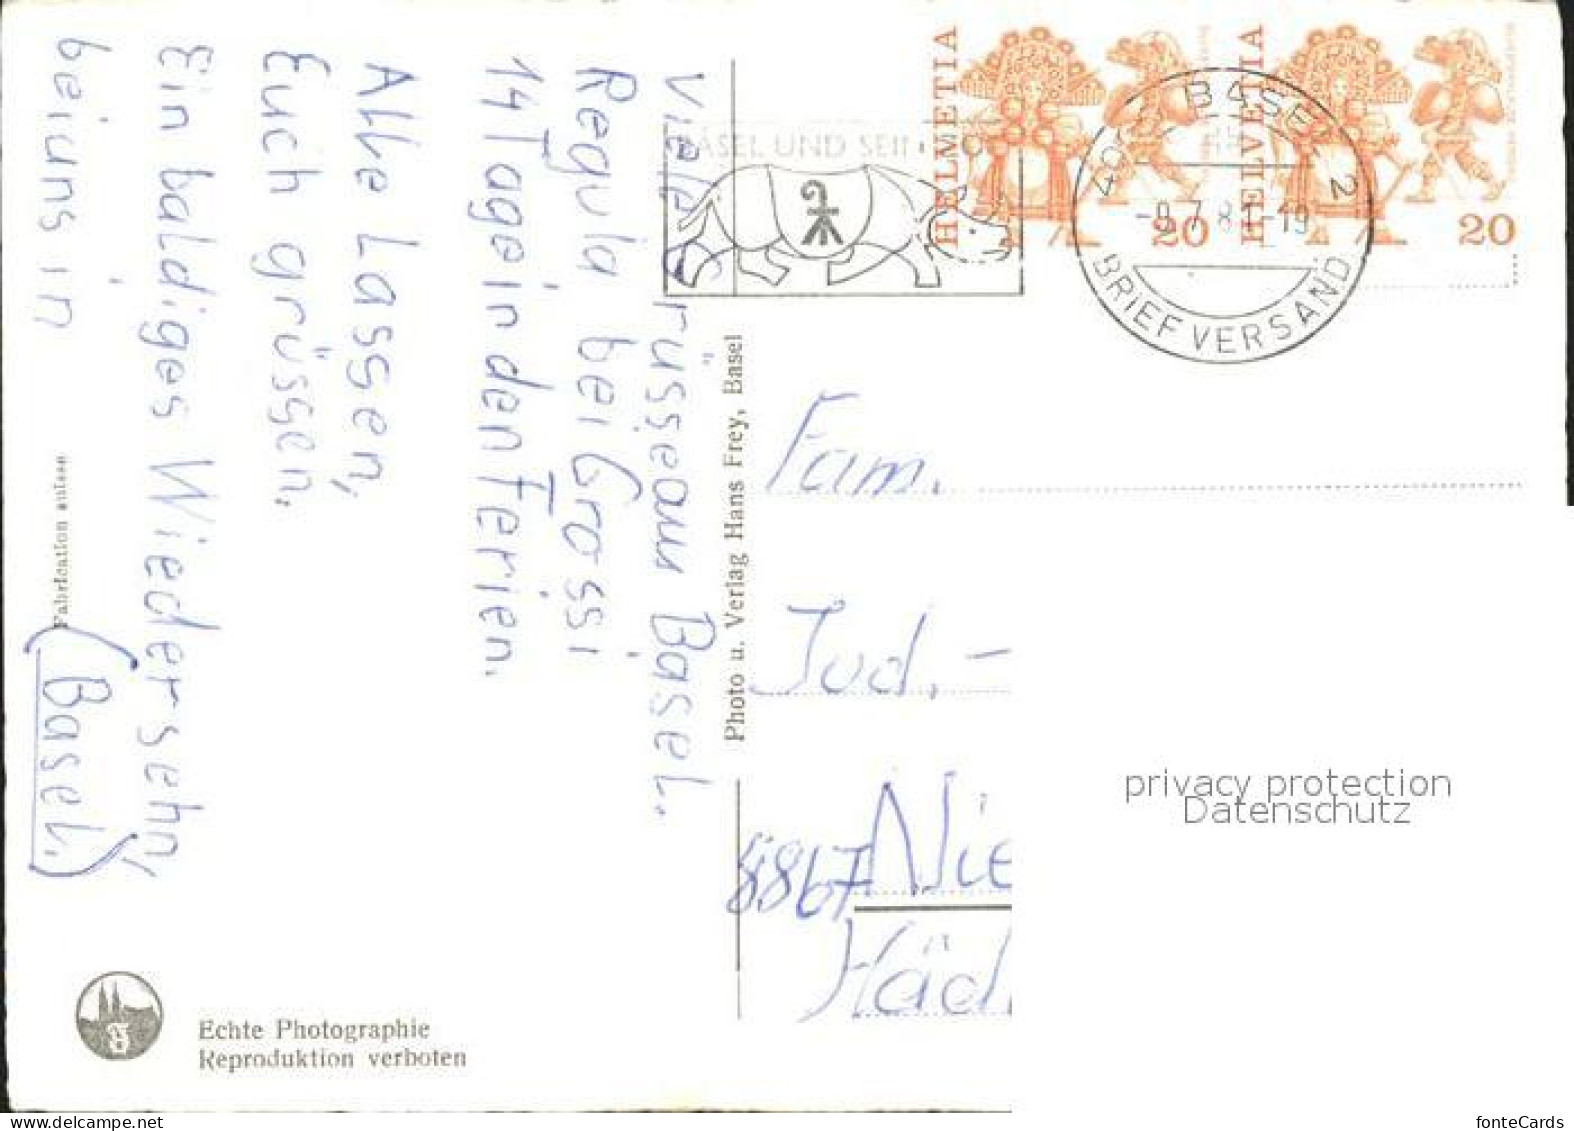 Viele Grüsse aus Basel.
Regula bei Grossi
14 Tage in den Ferien.
Alle Lassen,
Euch grüssen.
Ein baldiges Wiedersehn,
bei uns in
(Basel.)
Fabrication suisse
Echte Photographie
Reproduktion verboten
Photo u. Verlag Hans Frey, Basel
BASEL UND SEIN ZO
HELVETIA
20
HELVETIA
20
BASEL 2
-9.7.81-19
BRIEFVERSAND
Fam.
Jud. -
8867 Nie
Häd
privacy protection
Datenschutz
fonteCards